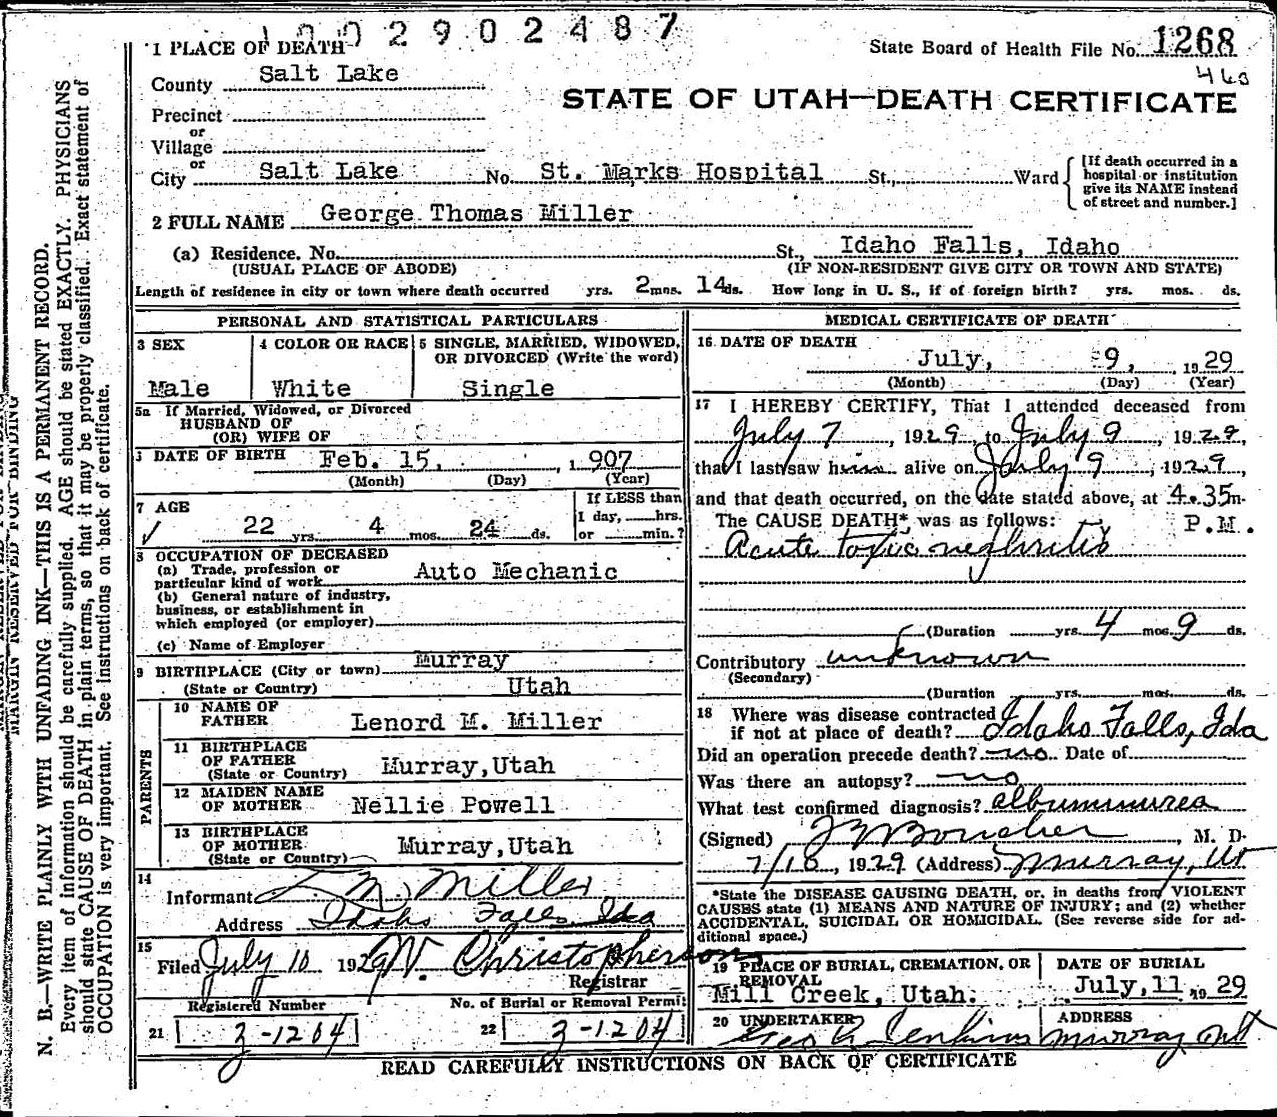 1002902487
1 PLACE OF DEATH
State Board of Health File No. 1268
460
County Salt Lake
STATE OF UTAH—DEATH CERTIFICATE
Precinct
or
Village
or
City Salt Lake No. St. Marks Hospital St., Ward
[If death occurred in a hospital or institution give its NAME instead of street and number.]
2 FULL NAME George Thomas Miller
(a) Residence. No. St., Idaho Falls, Idaho
(USUAL PLACE OF ABODE) (IF NON-RESIDENT GIVE CITY OR TOWN AND STATE)
Length of residence in city or town where death occurred yrs. 2 mos. 14 ds. How long in U. S., if of foreign birth? yrs. mos. ds.
PERSONAL AND STATISTICAL PARTICULARS
3 SEX
Male
4 COLOR OR RACE
White
5 SINGLE, MARRIED, WIDOWED, OR DIVORCED (Write the word)
Single
5a If Married, Widowed, or Divorced
HUSBAND OF
(OR) WIFE OF
DATE OF BIRTH Feb. 15, 1907
(Month) (Day) (Year)
7 AGE
22 yrs. 4 mos. 24 ds.
If LESS than
1 day, hrs.
or min.?
8 OCCUPATION OF DECEASED
(a) Trade, profession or
particular kind of work Auto Mechanic
(b) General nature of industry,
business, or establishment in
which employed (or employer)
(c) Name of Employer
9 BIRTHPLACE (City or town) Murray
(State or Country) Utah
PARENTS
10 NAME OF
FATHER Lenord M. Miller
11 BIRTHPLACE
OF FATHER
(State or Country) Murray,Utah
12 MAIDEN NAME
OF MOTHER Nellie Powell
13 BIRTHPLACE
OF MOTHER
(State or Country) Murray,Utah
14
Informant L M Miller
Address Idaho Falls Ida
15
Filed July 10 1929 W. Christopherson
Registrar
Registered Number
21 3-1204
No. of Burial or Removal Permit
22 3-1204
MEDICAL CERTIFICATE OF DEATH
16 DATE OF DEATH
July, 9, 1929
(Month) (Day) (Year)
17 I HEREBY CERTIFY, That I attended deceased from
July 7, 1929, to July 9, 1929,
that I last saw him alive on July 9, 1929,
and that death occurred, on the date stated above, at 4.35 m.
The CAUSE DEATH*, was as follows: P.M.
Acute toxic nephritis
(Duration yrs. 4 mos. 9 ds.
Contributory unknown
(Secondary)
(Duration yrs. mos. ds.
18 Where was disease contracted
if not at place of death? Idaho Falls, Ida
Did an operation precede death? no Date of
Was there an autopsy? no
What test confirmed diagnosis? albuminurea
(Signed) Boucher, M. D.
7/10, 1929 (Address) Murray, Ut
*State the DISEASE CAUSING DEATH, or, in deaths from VIOLENT
CAUSES state (1) MEANS AND NATURE OF INJURY; and (2) whether
ACCIDENTAL, SUICIDAL OR HOMICIDAL. (See reverse side for ad-
ditional space.)
19 PLACE OF BURIAL, CREMATION, OR
REMOVAL
Mill Creek, Utah.
DATE OF BURIAL
July, 11 1929
20 UNDERTAKER
Geo R Jenkins
ADDRESS
Murray Ut
READ CAREFULLY INSTRUCTIONS ON BACK OF CERTIFICATE
MARGIN RESERVED FOR BINDING
N. B.—WRITE PLAINLY WITH UNFADING INK—THIS IS A PERMANENT RECORD.
Every item of information should be carefully supplied. AGE should be stated EXACTLY. PHYSICIANS
should state CAUSE OF DEATH in plain terms, so that it may be properly classified. Exact statement of
OCCUPATION is very important. See instructions on back of certificate.